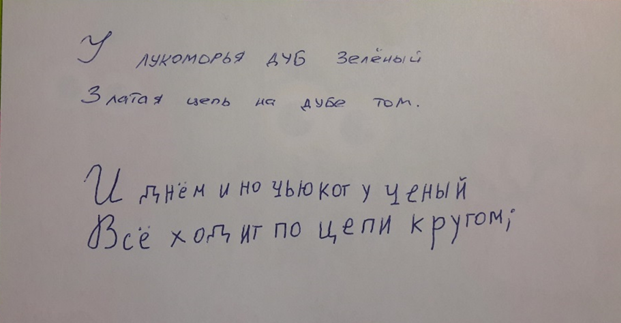 У лукоморья дуб зелёный
Златая цепь на дубе том.
И днём и ночью кот учёный
Всё ходит по цепи кругом;